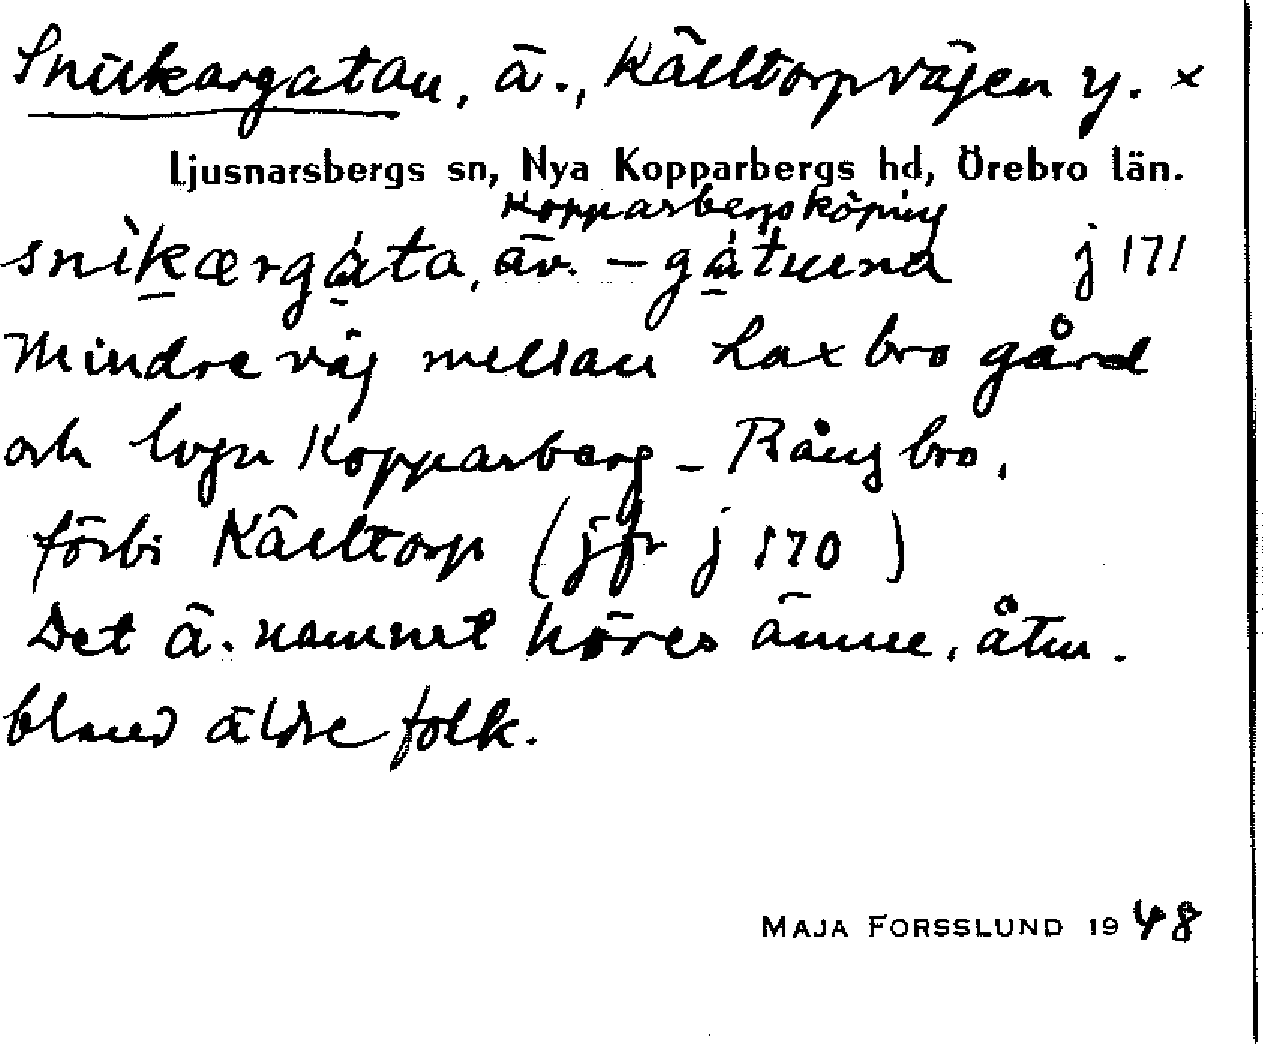 Snickargatan, ä., Källtorpvägen y. ×
Ljusnarsbergs sn, Nya Kopparbergs hd, Örebro län.
Kopparbergs köping
snìkærgáta, äv. – gátuena j 171
Mindre väg mellan Laxbro gård
och lvgn Kopparberg – Bångbro,
förbi Källtorp (jfr j 170)
Det ä. namnet höres ännu, åtm.
bland äldre folk.
MAJA FORSSLUND 1948